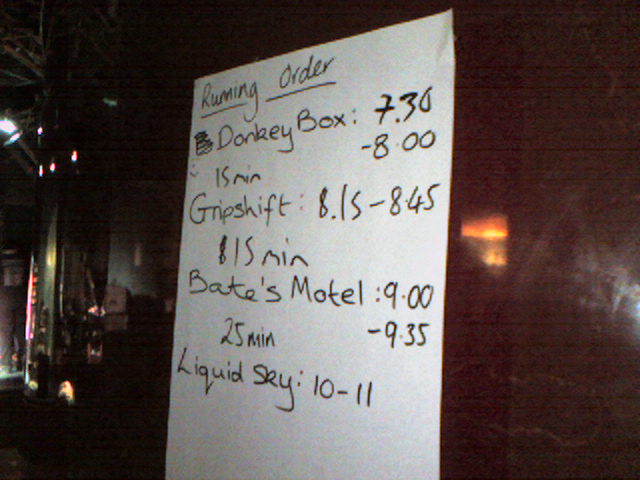 Running Order
Donkey Box: 7.30
-8.00
15min
Gripshift: 8.15-8.45
15min
Bate's Motel: 9.00
25min -9.35
Liquid Sky: 10-11